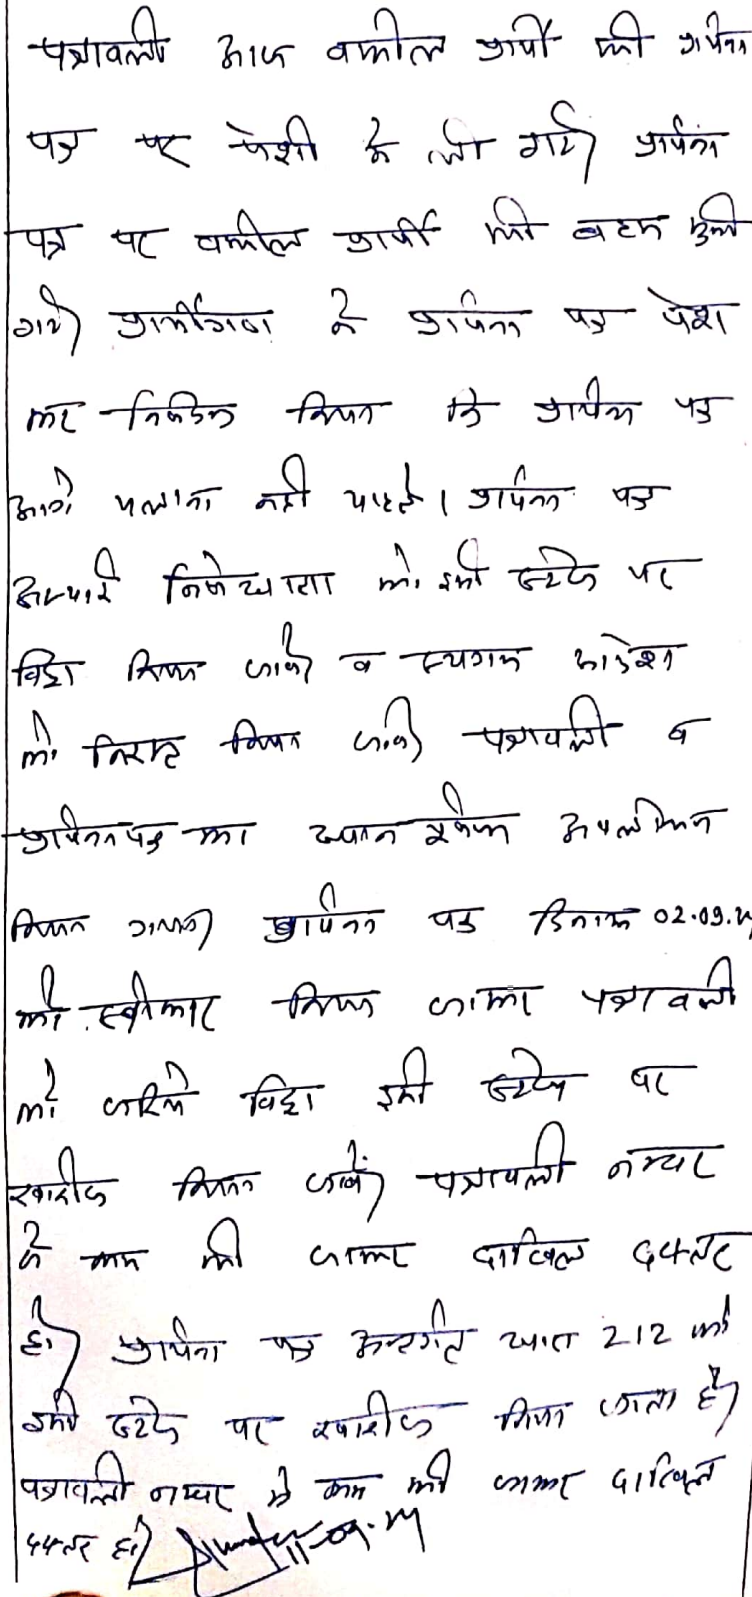 पत्रावली आज वकील प्रार्थी की प्रार्थना
पत्र पर पेशी में ली गई। प्रार्थना
पत्र पर वकील प्रार्थी की बहस सुनी
गयी। प्रार्थीगण ने प्रार्थना पत्र पेश
कर निवेदन किया कि प्रार्थना पत्र
आगे चलाना नहीं चाहते। प्रार्थना पत्र
अस्थाई निषेधाज्ञा को इसी स्टेज पर
विड्रा किया जावे व स्थगन आदेश
को निरस्त किया जावे। पत्रावली व
प्रार्थनापत्र का ध्यान पूर्वक अवलोकन
किया गया। प्रार्थना पत्र दिनांक 02.09.24
को स्वीकार किया जाकर पत्रावली
को जरिये विड्रा इसी स्टेज पर
खारीज किया जावें। पत्रावली नम्बर
से कम की जाकर दाखिल दफ्तर
हो। प्रार्थना पत्र अन्तर्गत धारा 212 को
इसी स्टेज पर खारीज किया जाता है।
पत्रावली नम्बर से कम की जाकर दाखिल
दफ्तर हो।